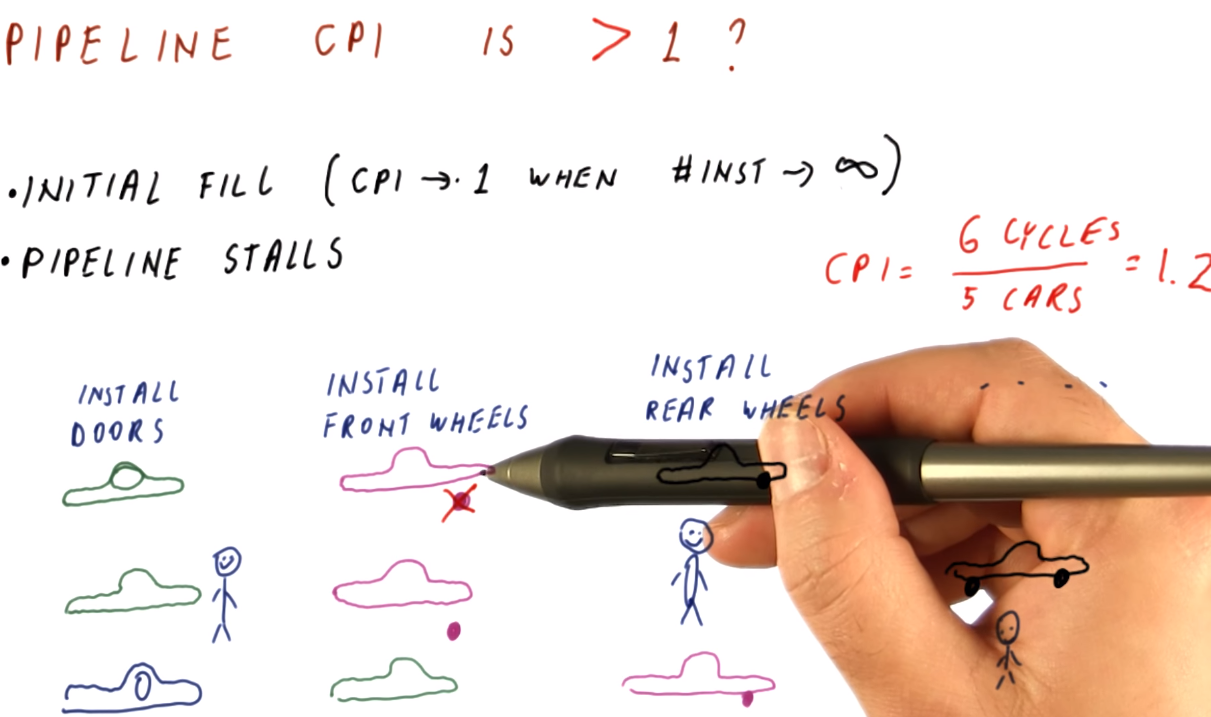 PIPELINE CPI IS > 1 ?
• INITIAL FILL (CPI → 1 WHEN #INST → ∞)
• PIPELINE STALLS
CPI = 6 CYCLES / 5 CARS = 1.2
INSTALL DOORS
INSTALL FRONT WHEELS
INSTALL REAR WHEELS
. . . .